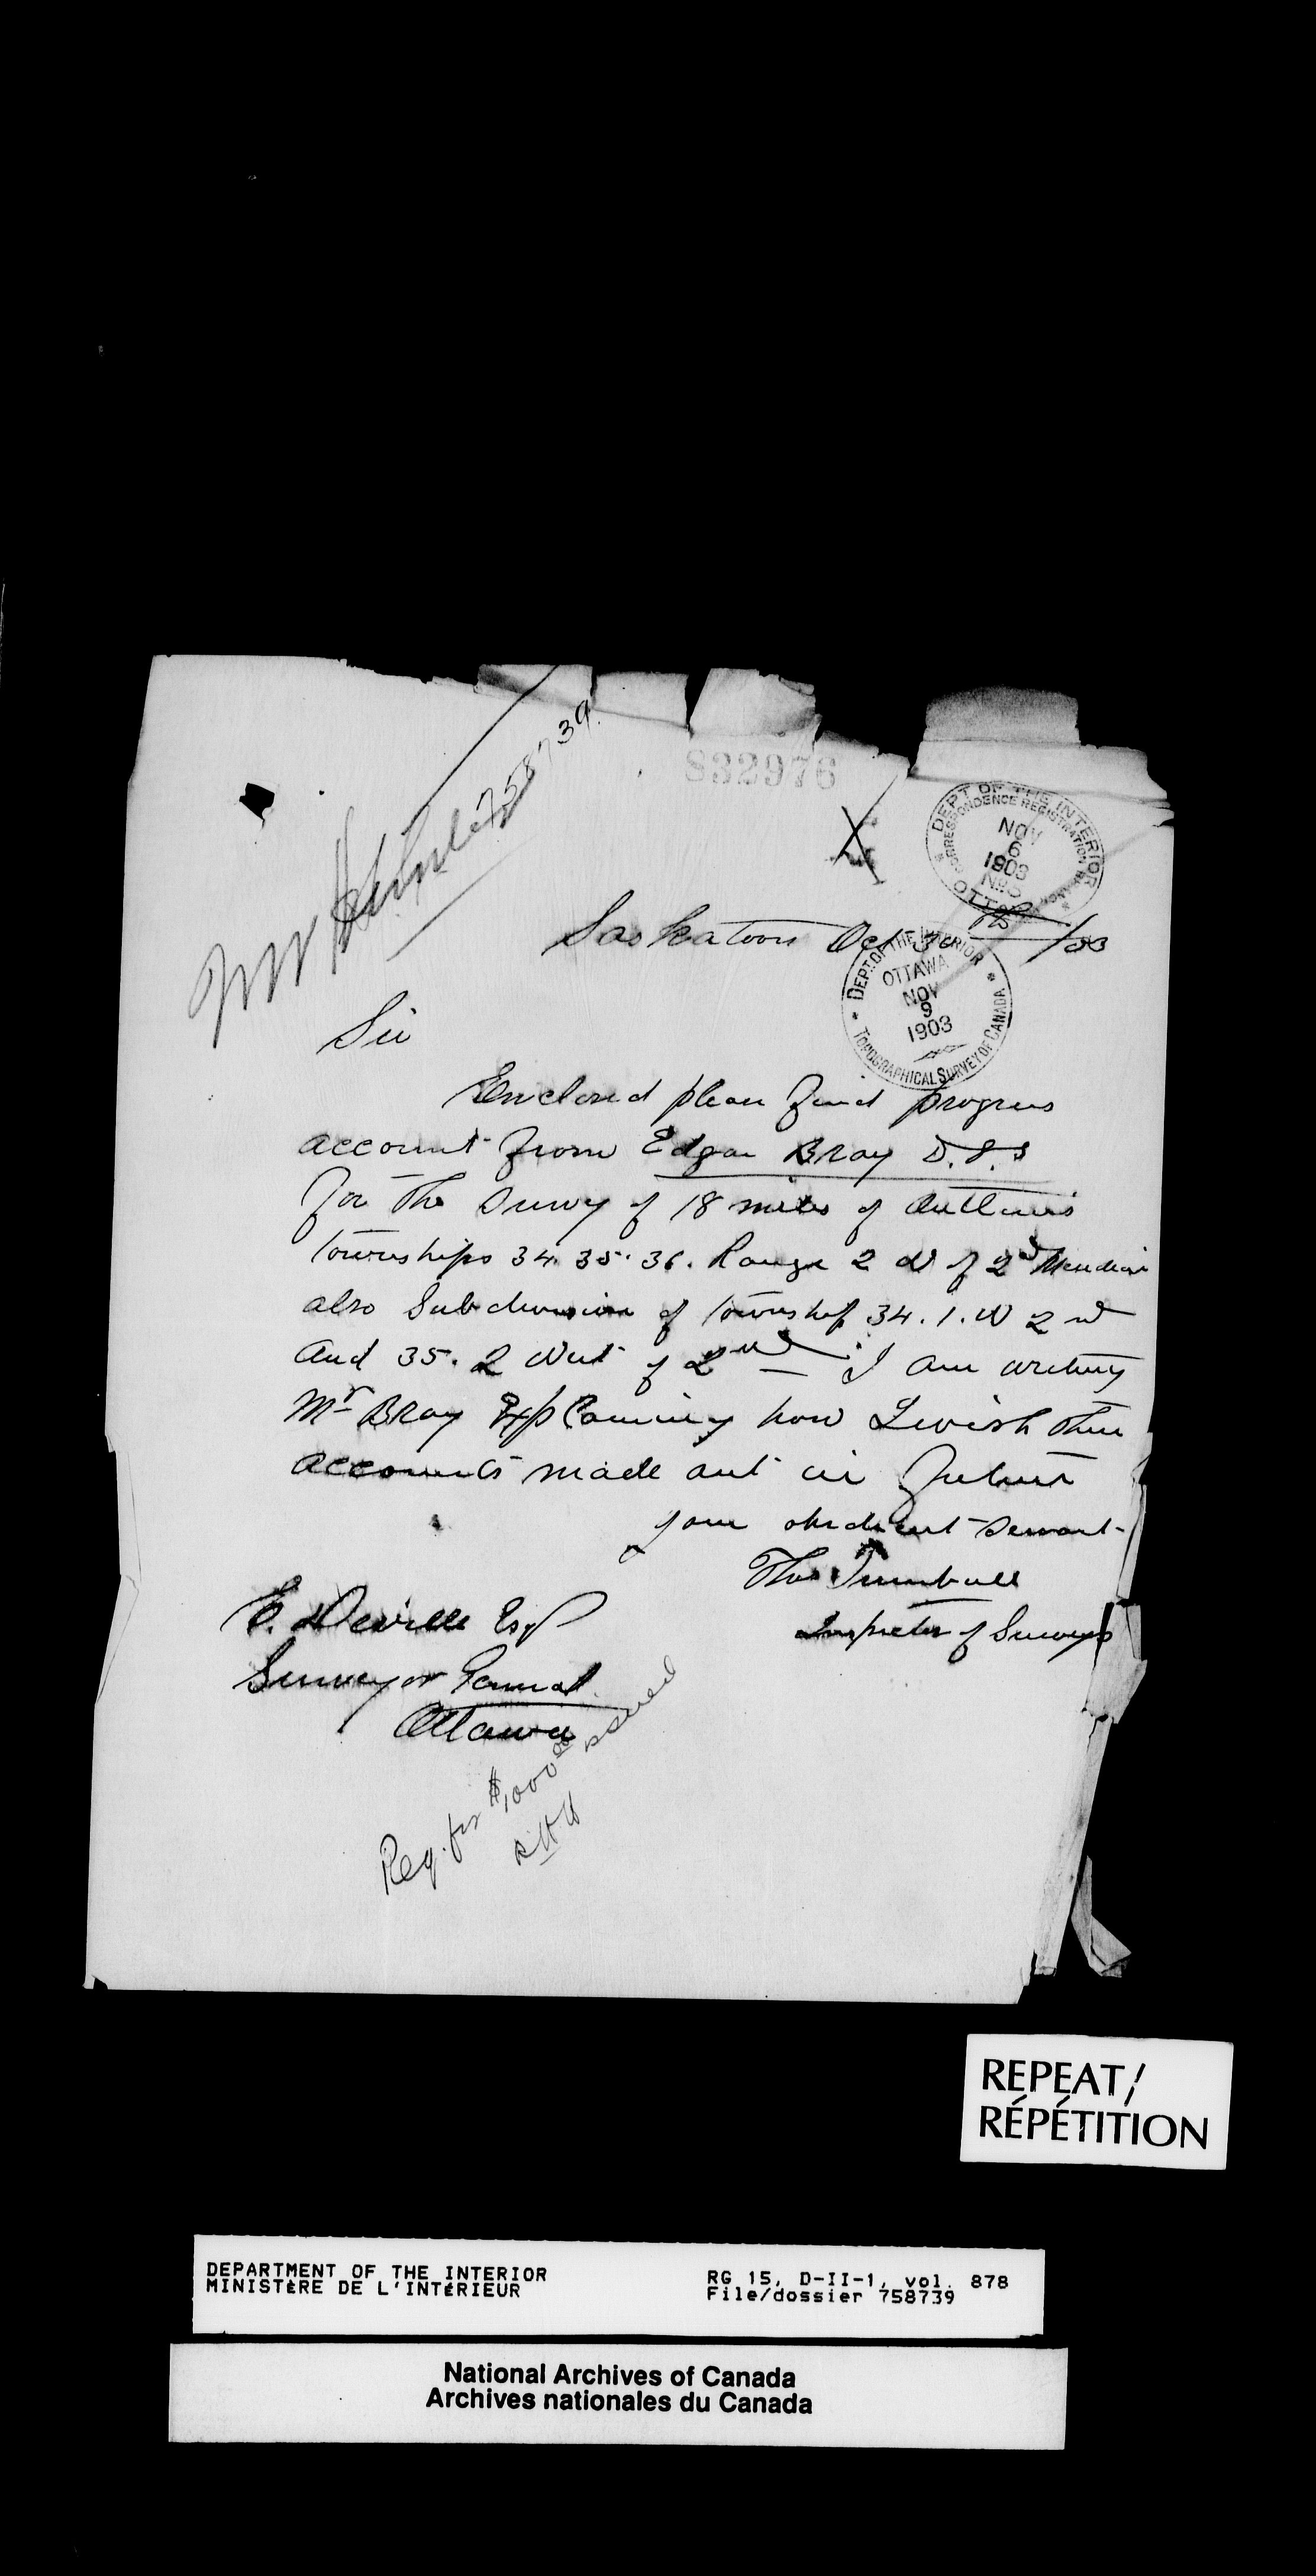 758739
832976
DEPT OF THE INTERIOR
CORRESPONDENCE REGISTRATION
NOV
6
1903
OTTAWA
Saskatoon Oct 30th /03
DEPT. OF THE INTERIOR
OTTAWA
NOV
9
1903
TOPOGRAPHICAL SURVEY OF CANADA
Sir
Enclosed please find progress
account from Edgar Bray D.L.S
for the survey of 18 miles of Outlines
townships 34. 35. 36. Range 2 W of 2nd Meridian
also Subdivision of township 34. 1. W 2nd
and 35. 2 West of 2nd I am writing
Mr Bray Explaining how I wish these
accounts made out in future
your obedient servant
Thos Turnbull
Inspector of Surveys
E. Deville Esq
Surveyor General
Ottawa
Req. for $1,000 00 issued
REPEAT/
RÉPÉTITION
DEPARTMENT OF THE INTERIOR
MINISTÈRE DE L'INTÉRIEUR
RG 15, D-II-1, vol. 878
File/dossier 758739
National Archives of Canada
Archives nationales du Canada